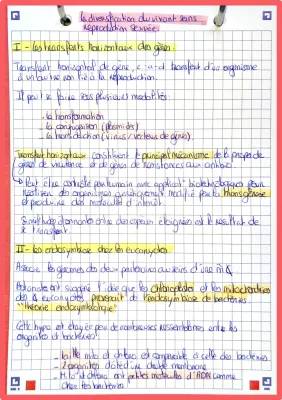 la diversification du vivant sans
reproduction sexuée
I - Les transferts horizontaux des gènes.
Transfert horizontal de gène, c-a-d transfert d'un organisme
à un autre non lié à la reproduction.
Il peut se faire sous plusieurs modalités:
- la transformation
- la conjugaison (plasmides)
- la transduction (virus / vecteur de gènes).
Transfert horizontaux constituent le principal mécanisme de la propa de
gènes de virulence et gènes de résistances aux antibio.
↳ Peut être contrôlé par humain avec applicat° biotechnologiques pour
création des organismes génétiquement modifié par la transgénèse
et produire des molécules d'intérêt.
de
le transfert.
II - Les endosymbiose chez les eucaryotes
Associe les génomes des deux partenaires au sein d'une m̂
suggère l'idée que les chloroplastes et les mitochondries
des eucaryotes provenait de l'endosymbiose de bactéries
"théorie endosymbiotique"
Cette hypo est étayée par de nombreuses ressemblances entre les
organites et bactéries:
- la mito et chloro est comparable à celle des bactéries
- 2 organites dotées d'une double membrane
- Mito et chloro ont petites molécules d'ADN comme
chez les bactéries